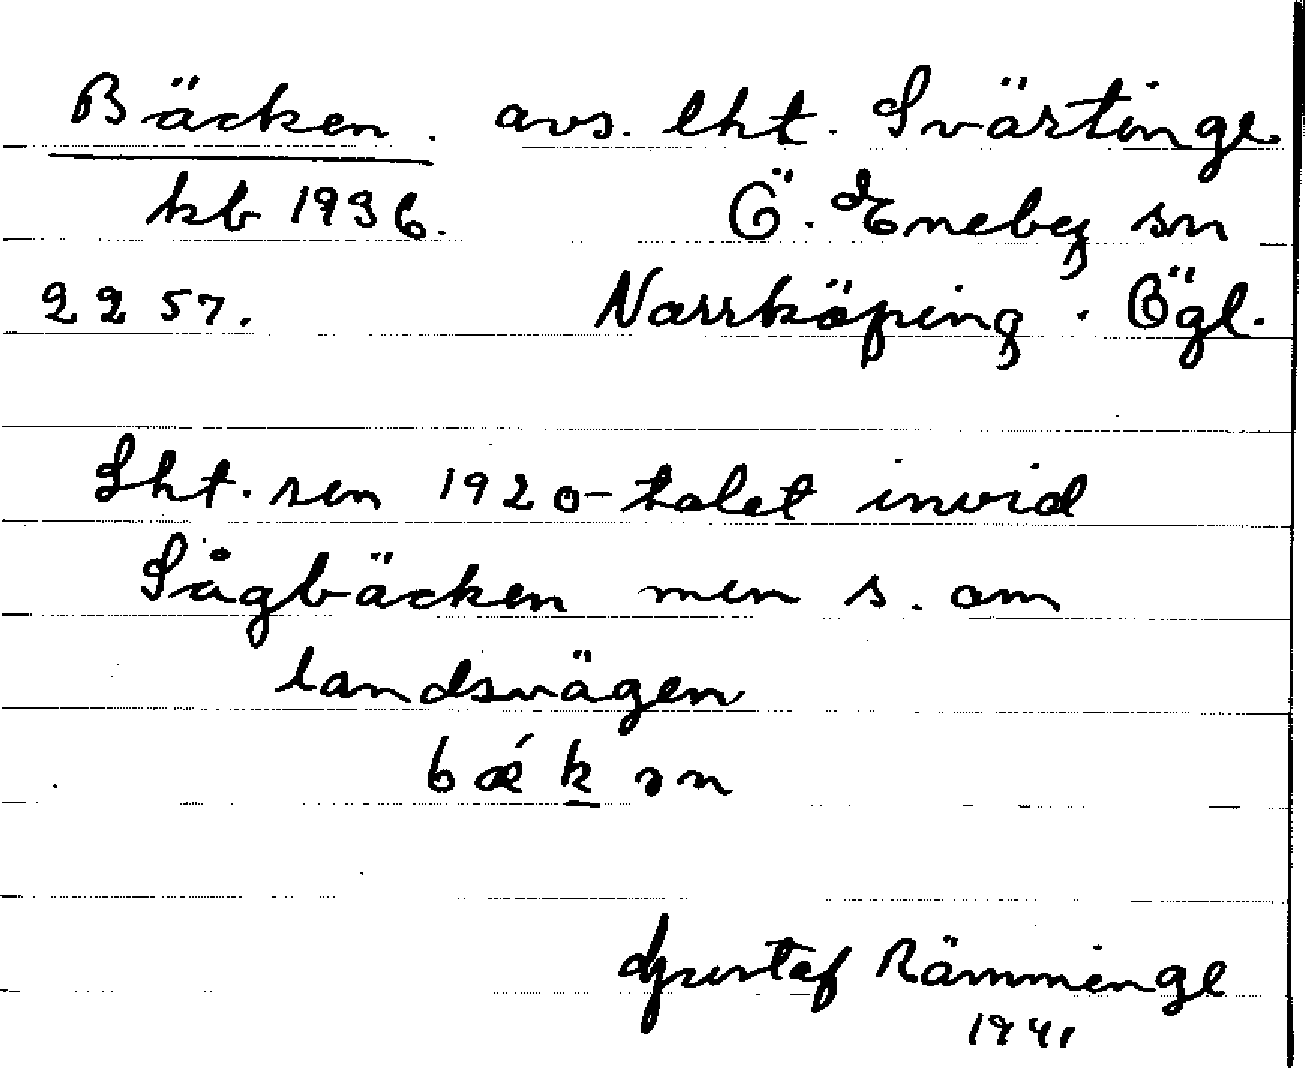 Bäcken. avs. lht. Svärtinge
kb 1936. Ö. Eneby sn
2257. Norrköping. Ögl.
Lht. sen 1920-talet invid
Sågbäcken men s. om
landsvägen
bǽkən
Gustaf Rämminge
1941